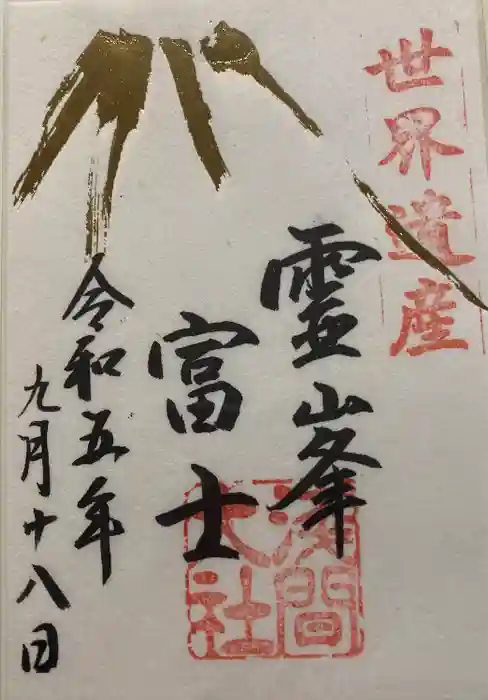 世界遺産
霊峯
富士
浅間
大社
令和五年
九月十八日